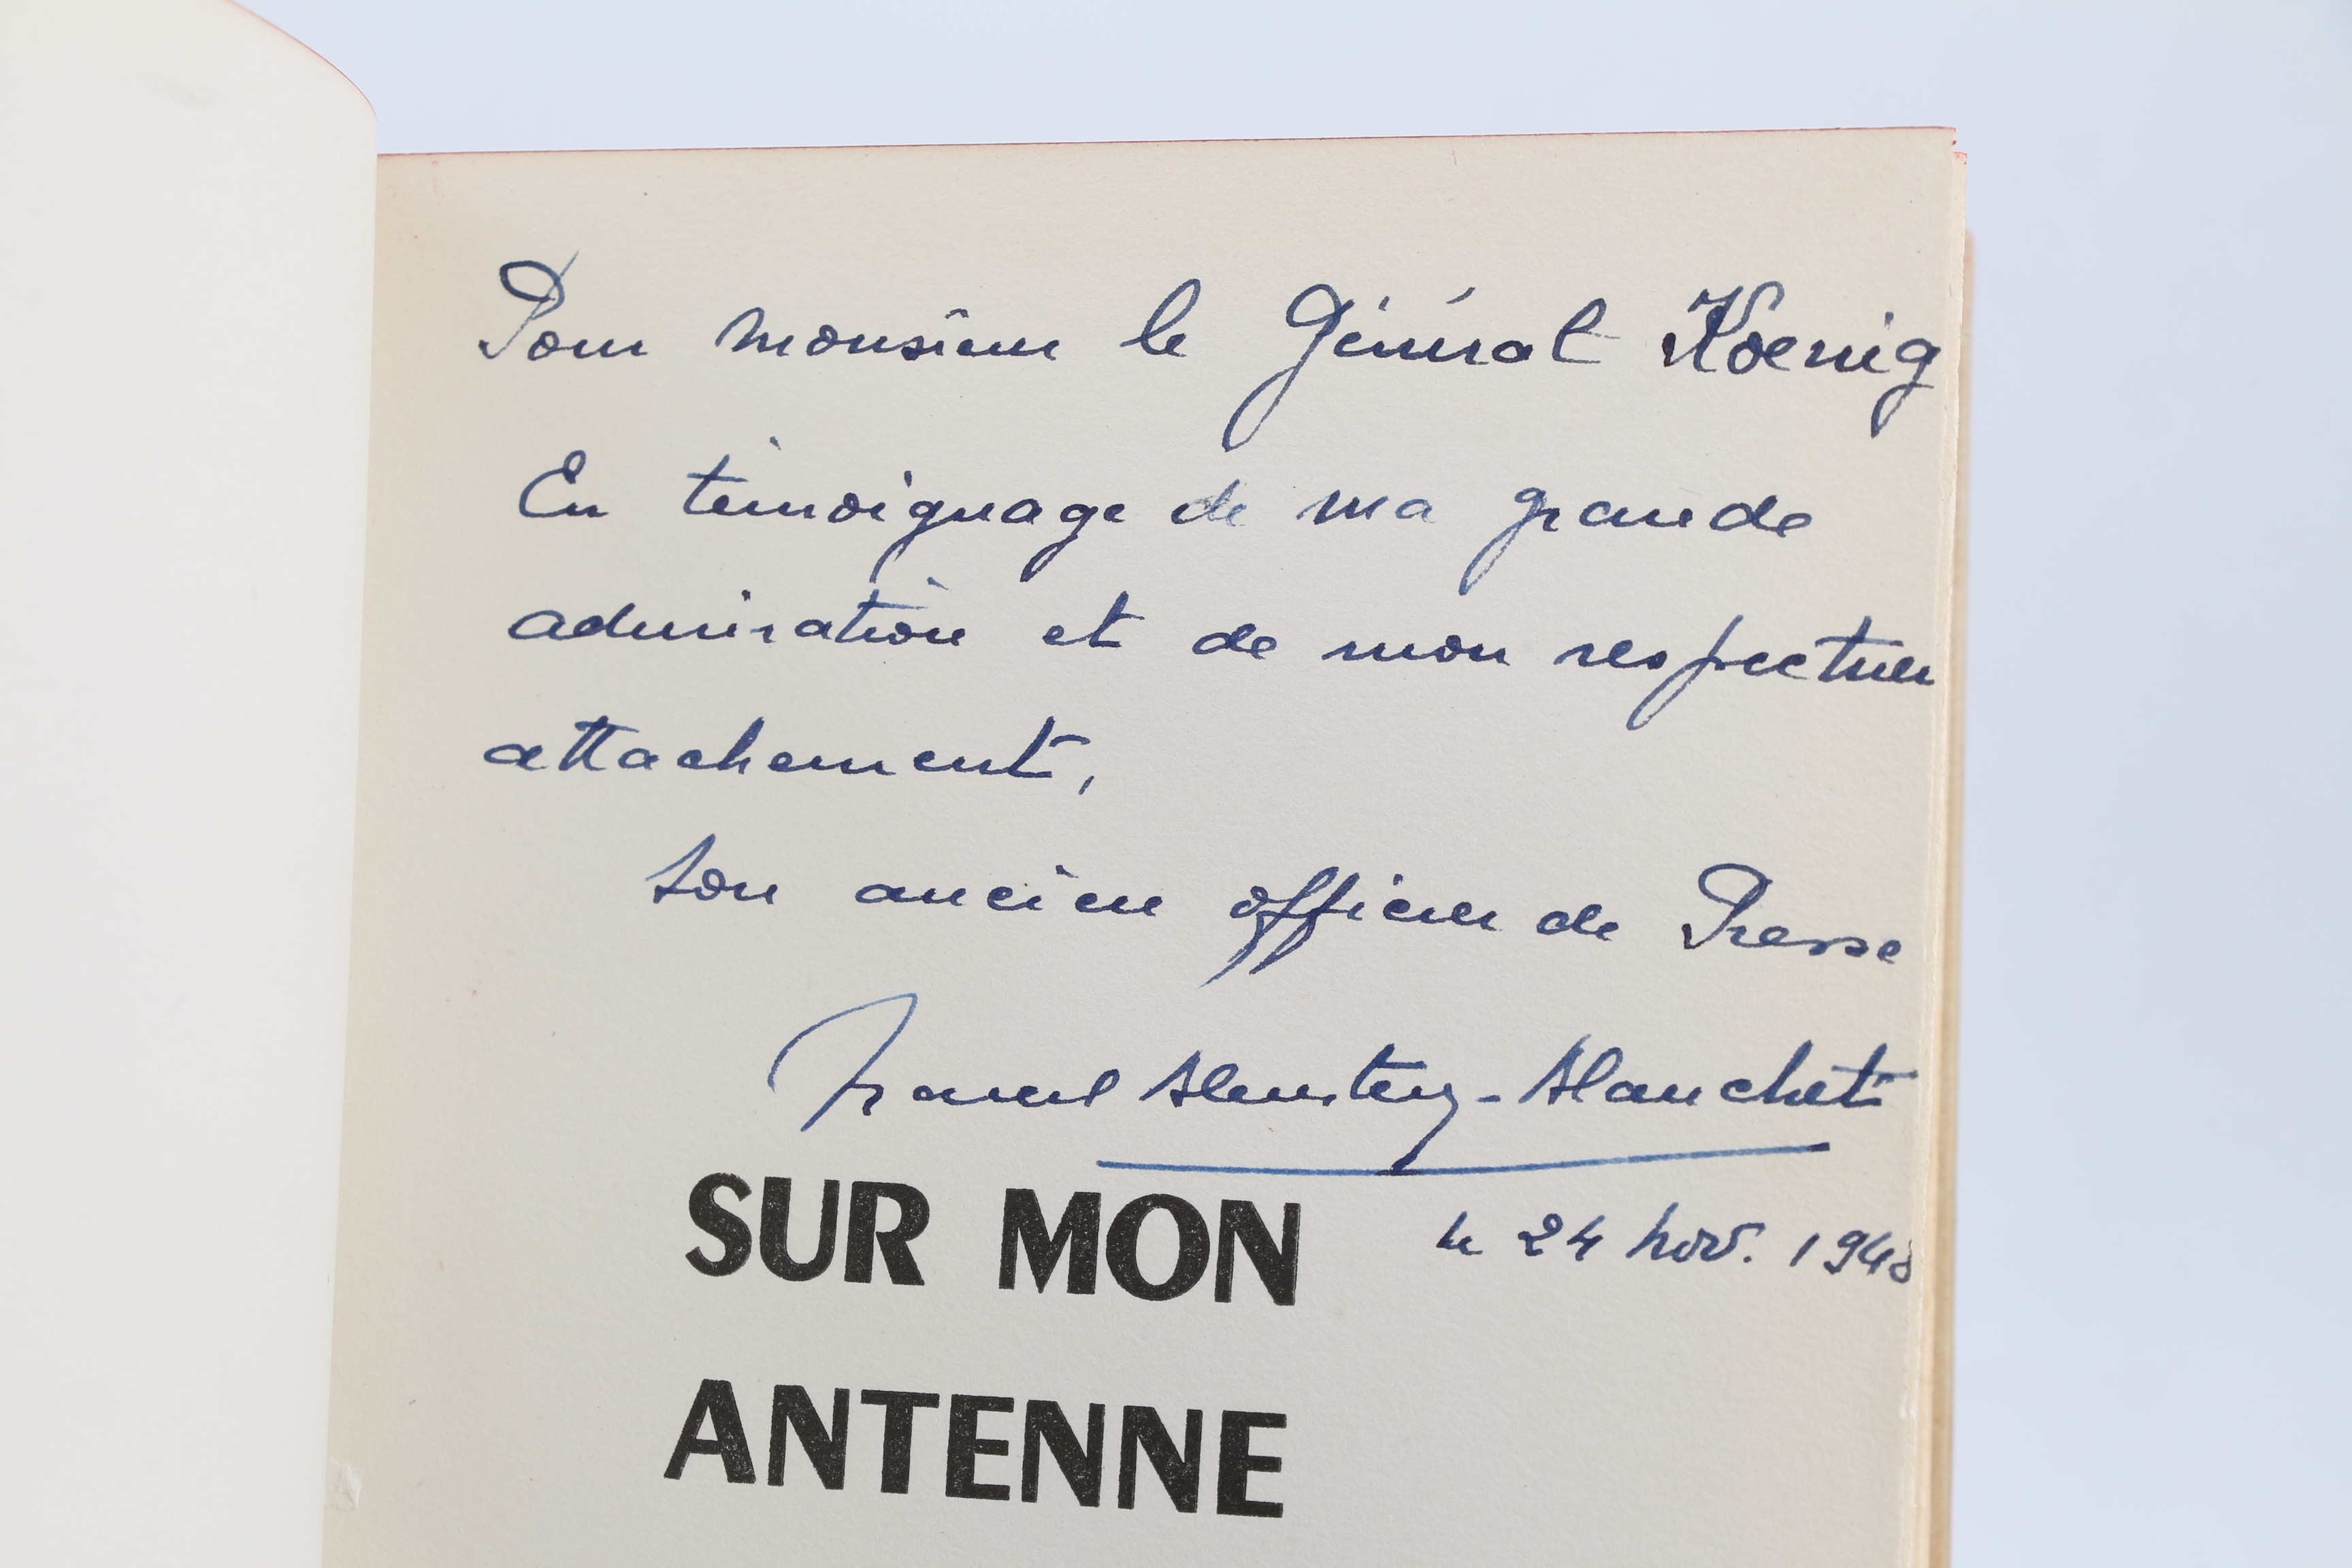 Pour monsieur le Général Koenig
En témoignage de ma grande
admiration et de mon respectueu
attachement,
son ancien officier de Presse
Marcel Bleustein-Blanchet
le 24 nov. 1948
SUR MON
ANTENNE